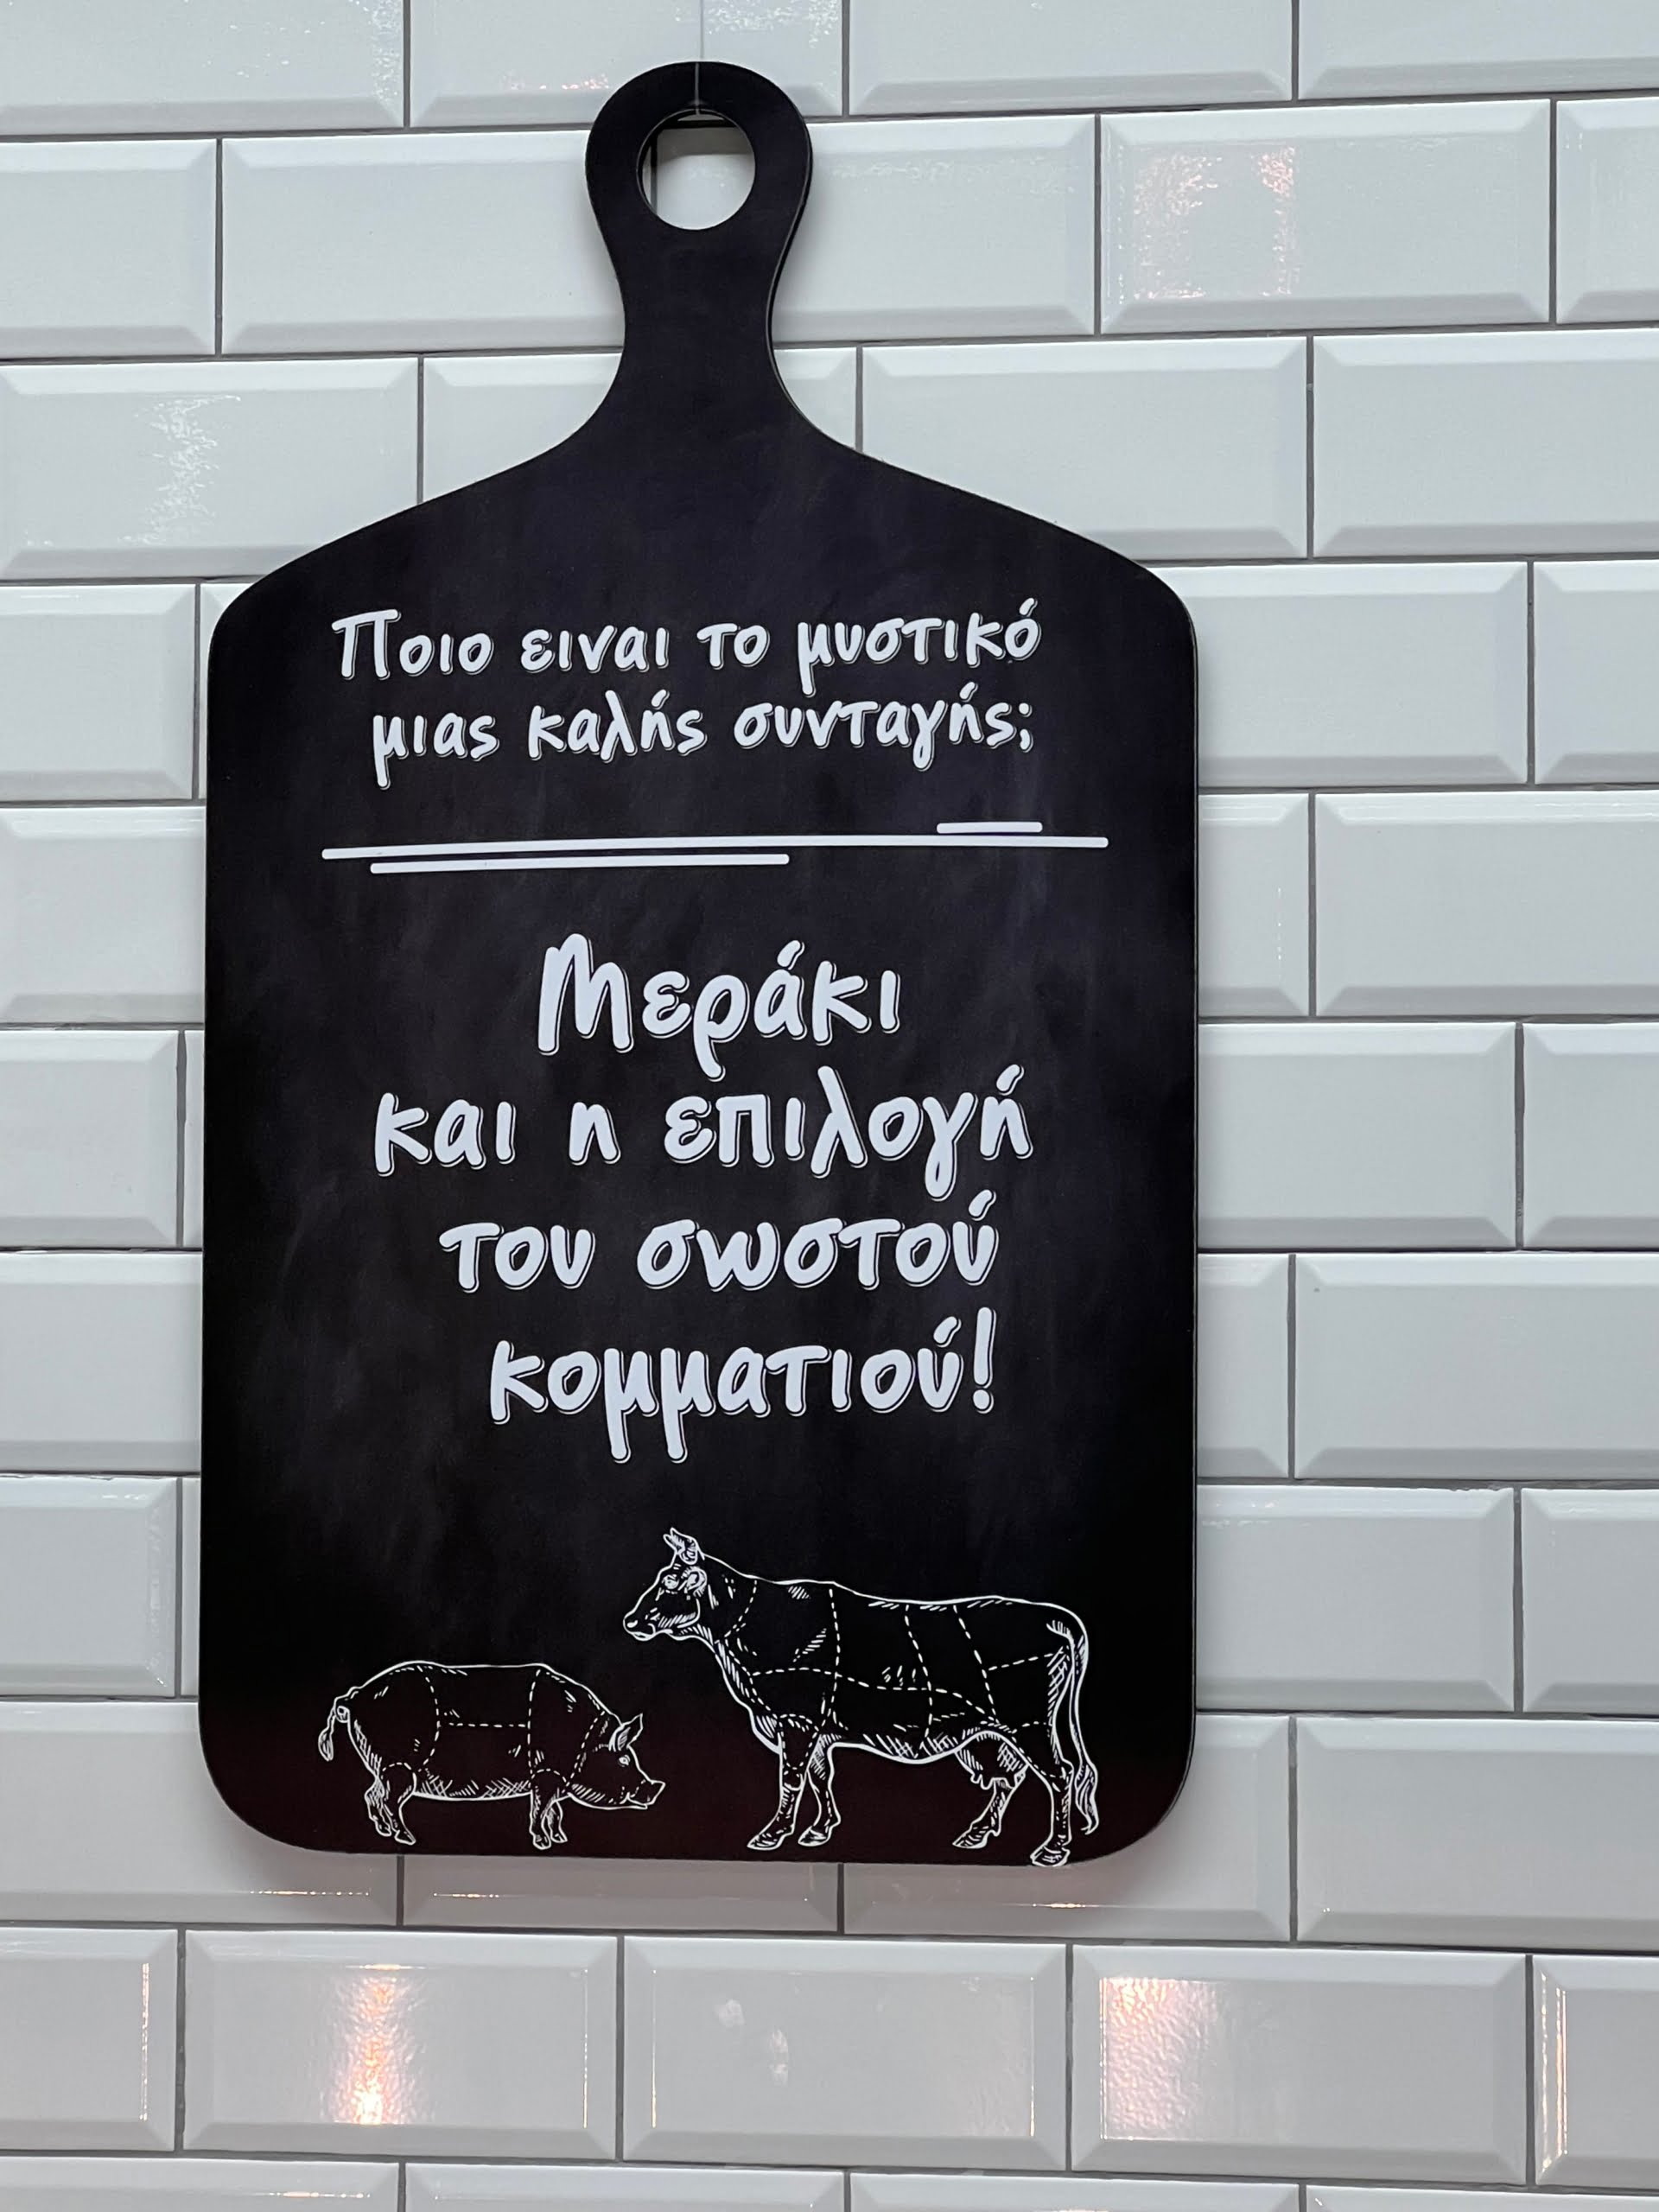 Ποιο ειναι το μυστικό
μιας καλής συνταγής;
Μεράκι
και η επιλογή
του σωστού
κομματιού!